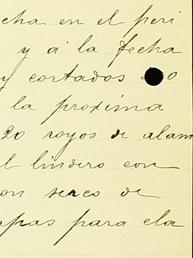 cha en el peri
y á la fecha
y cortados
la proxima
20 royos de alam
l lindero con
on serco de
apas para ela